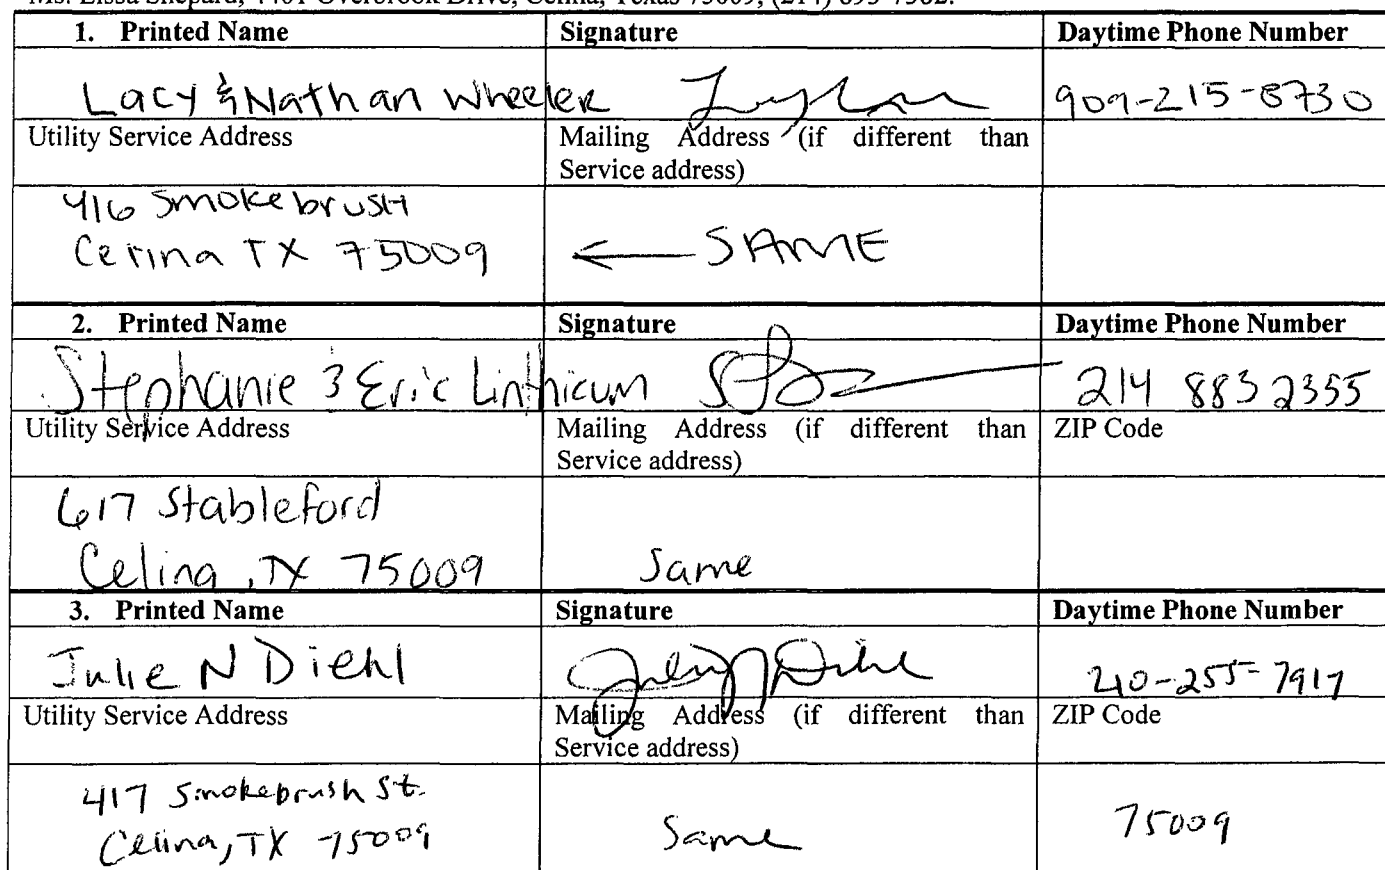 Ms. Lissa Shepard, 4401 Overbrook Drive, Celina, Texas 75009, (214) 893-7382.
1. Printed Name Signature Daytime Phone Number
Lacy & Nathan Wheeler 909-215-8730
Utility Service Address Mailing Address (if different than
Service address)
416 Smokebrush
Celina TX 75009 ← SAME
2. Printed Name Signature Daytime Phone Number
Stephanie & Eric Linthicum 214 883 2355
Utility Service Address Mailing Address (if different than ZIP Code
Service address)
617 Stableford
Celina, TX 75009 Same
3. Printed Name Signature Daytime Phone Number
Julie N Diehl 210-255-7917
Utility Service Address Mailing Address (if different than ZIP Code
Service address)
417 Smokebrush St.
Celina, TX 75009 Same 75009